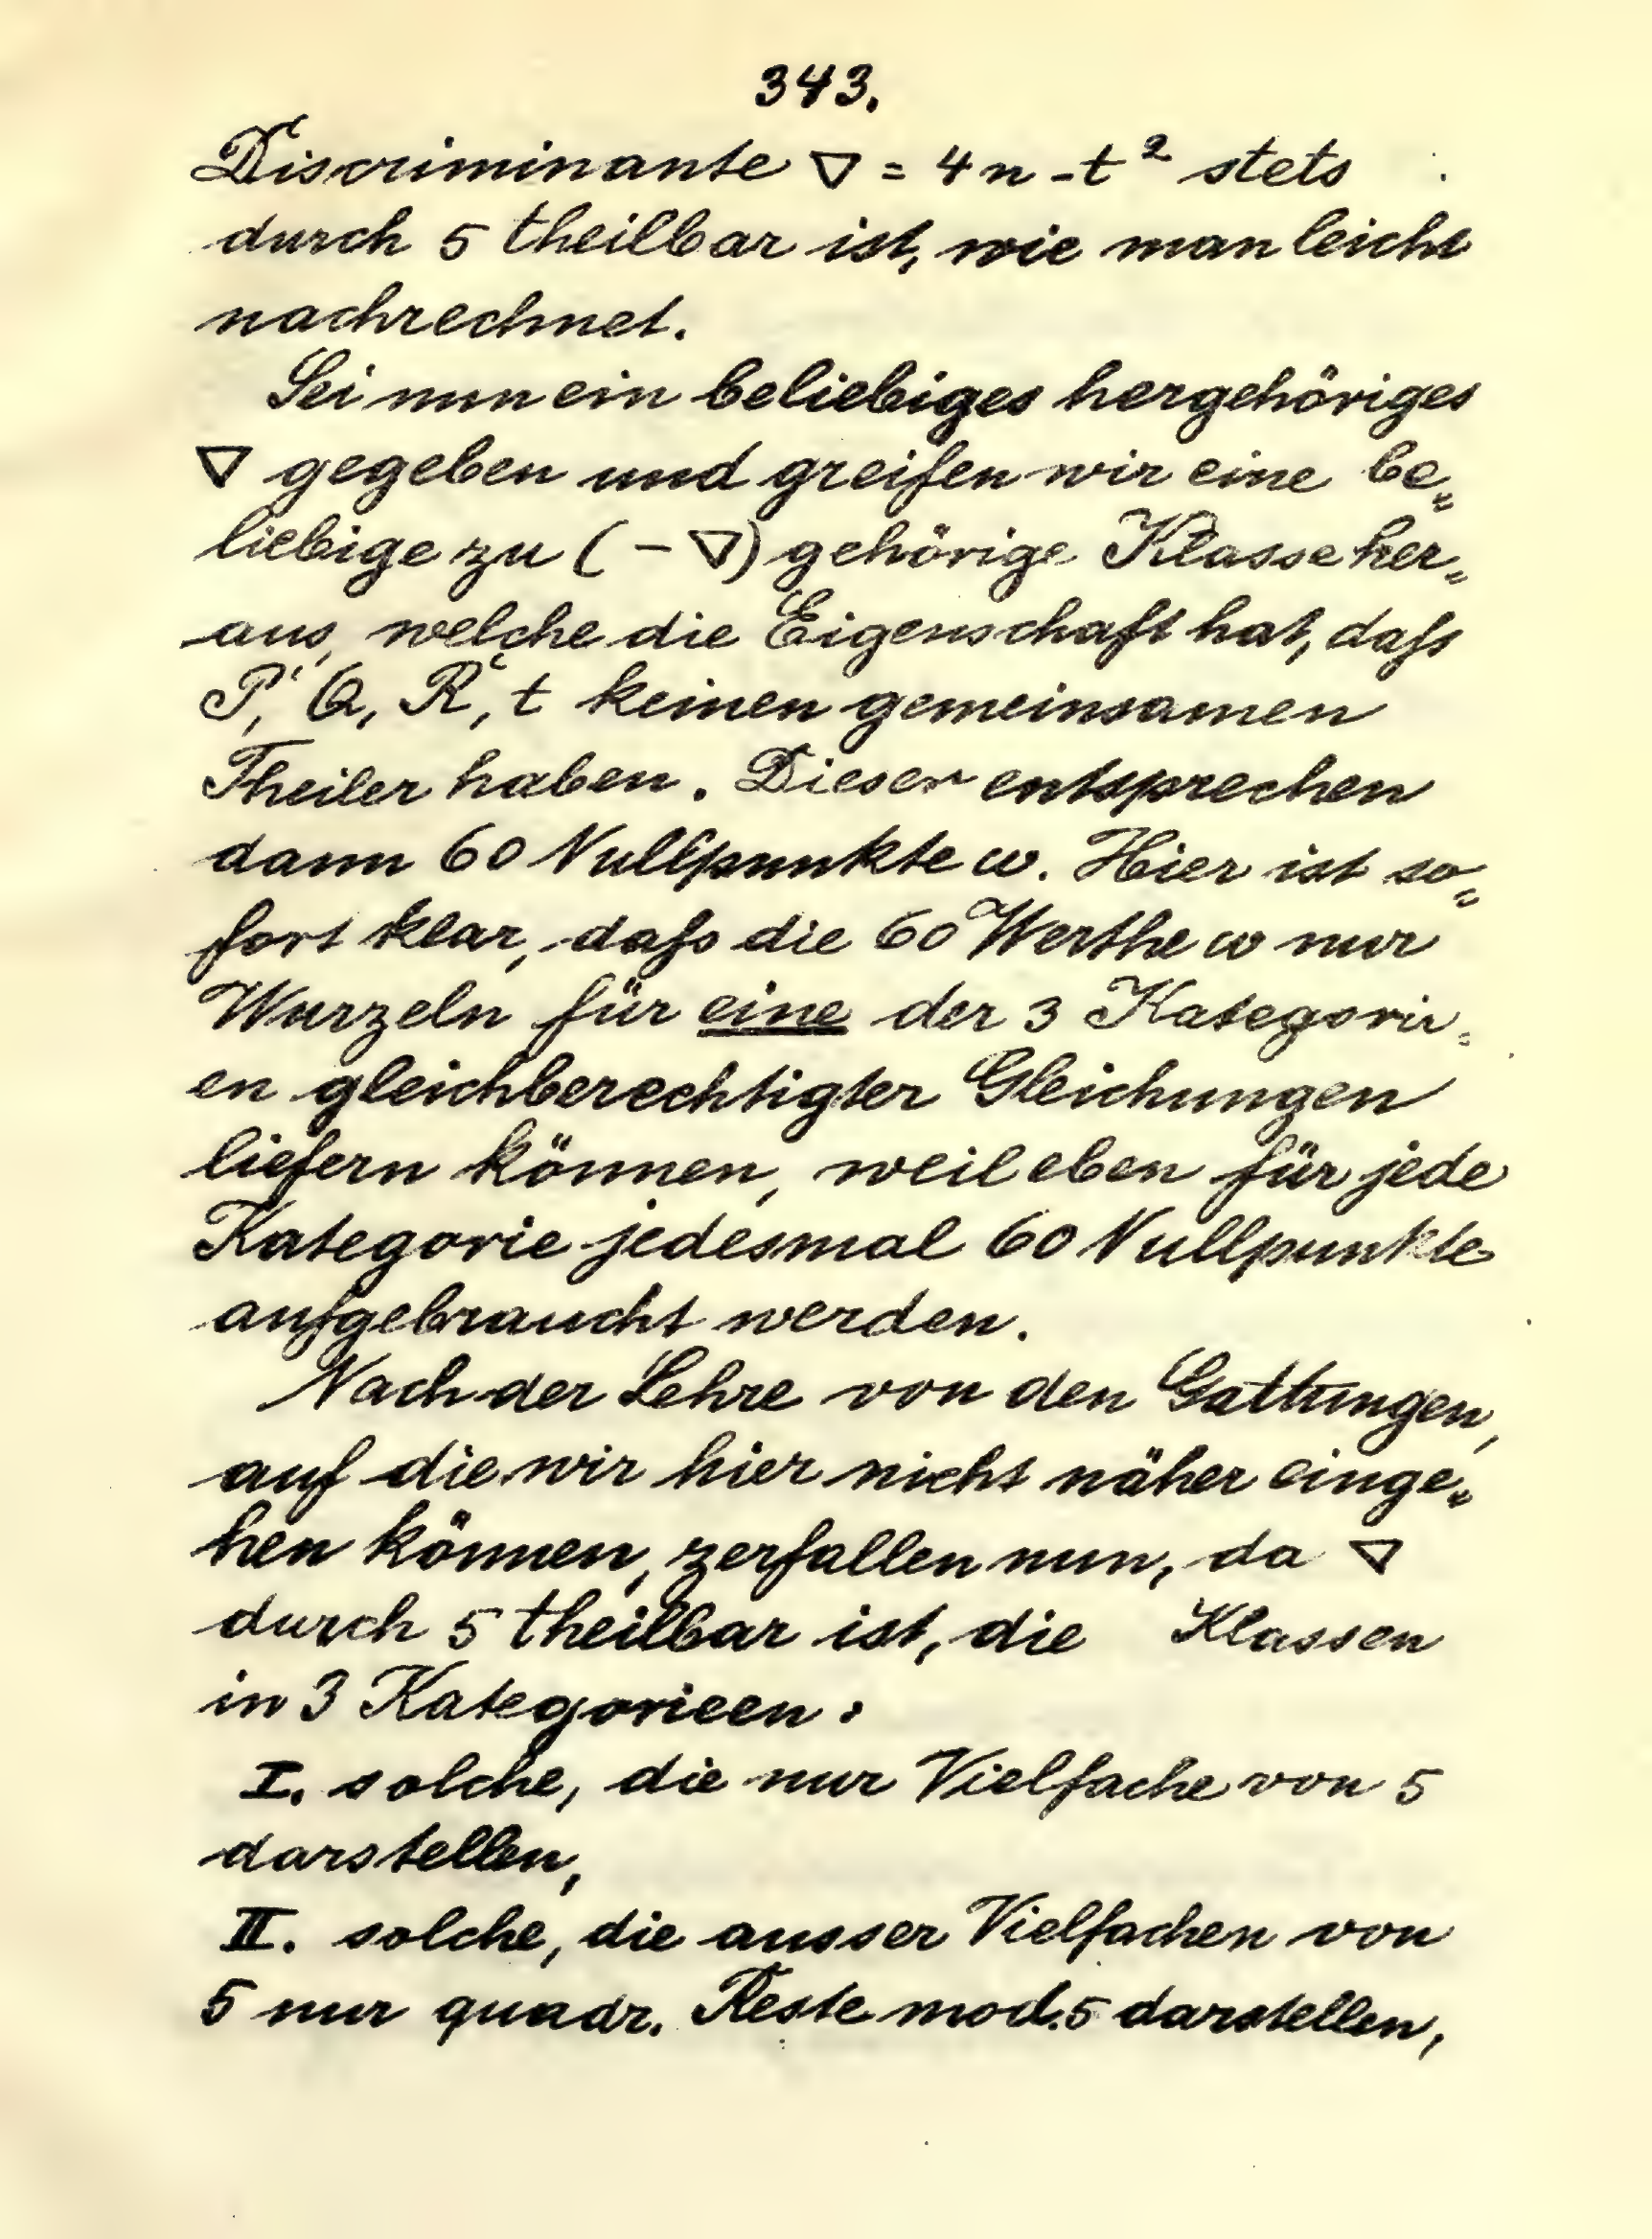 343.
Discriminante ▽ = 4n - t² stets
durch 5 theilbar ist, wie man leicht
nachrechnet.
Sei nun ein beliebiges hergehöriges
▽ gegeben und greifen wir eine be„
liebige zu (-▽) gehörige Klasse her„
aus, welche die Eigenschaft hat, daſs
P', Q, R', t keinen gemeinsamen
Theiler haben. Dieser entsprechen
dann 60 Nullpunkte ω. Hier ist so„
fort klar, daſs die 60 Werthe ω nur
Wurzeln für eine der 3 Kategorie„
en gleichberechtigter Gleichungen
liefern können, weil eben für jede
Kategorie jedesmal 60 Nullpunkte
aufgebraucht werden.
Nach der Lehre von den Gattungen,
auf die wir hier nicht näher einge„
hen können, zerfallen nun, da ▽
durch 5 theilbar ist, die Klassen
in 3 Kategorieen:
I. solche, die nur Vielfache von 5
darstellen,
II. solche, die ausser Vielfachen von
5 nur quadr. Reste mod. 5 darstellen,